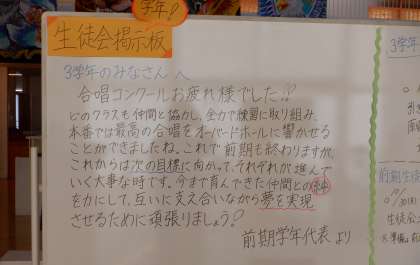 学年!
生徒会掲示板
3学年のみなさんへ
合唱コンクールお疲れ様でした!!
どのクラスも仲間と協力し、全力で練習に取り組み、
本番では最高の合唱をオーバードホールに響かせる
ことができましたね。これで前期も終わりますが、
これからは次の目標に向かって、それぞれが進んで
いく大事な時です。今まで育んできた仲間との絆
を力にして、互いに支え合いながら夢を実現
させるために頑張りましょう!
前期学年代表より
3学年
前期生徒